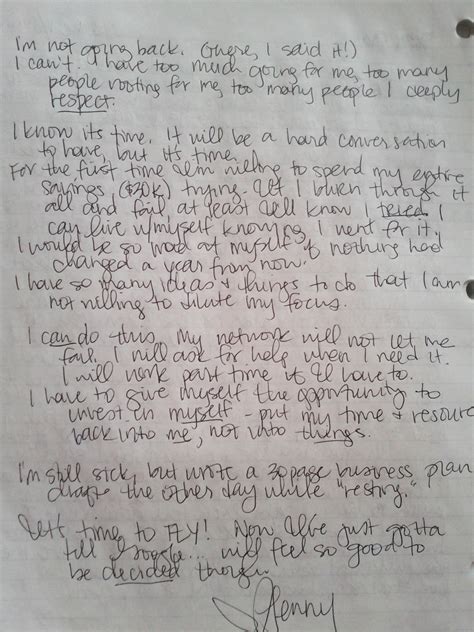 I'm not going back. (there, I said it!)
I can't. I have too much going for me, too many
people rooting for me, too many people I deeply
respect.
I know it's time. It will be a hard conversation
to have, but it's time.
For the first time I'm willing to spend my entire
savings ($30K) trying. If I blown through it
all and fail, at least I'll know I tried. I
can live w/myself knowing I went for it.
I would be so mad at myself if nothing had
changed a year from now.
I have so many ideas & things to do that I am
not willing to dilute my focus.
I can do this. My network will not let me
fail. I will ask for help when I need it.
I will work part time if I have to.
I have to give myself the opportunity to
invest in myself - put my time & resourc
back into me, not into things.
I'm still sick, but wrote a 30 page business plan
draft the other day while "resting."
time to FLY! Now I've just gotta
tell Google... will feel so good to
be decided though.
Jenny